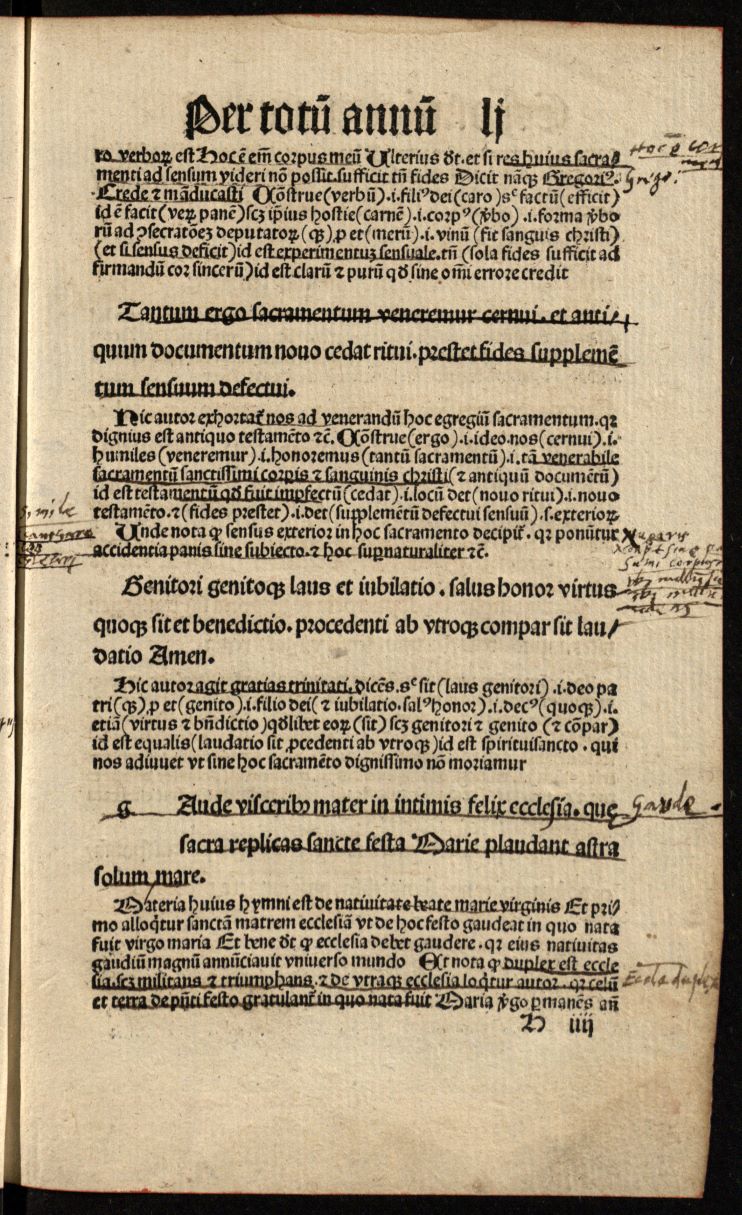 Per totū annū lj
ro verboꝝ est Hoc ē em̄ corpus meū Ulterius dt̄. et si res huius sacra⸗
menti ad sensum videri nō possit. sufficit tn̄ fides Dicit nāqꝫ Gregoriꝰ.
Crede ⁊ māducasti Cōstrue (verbū) .i. filiꝰ dei (caro) sᶜ factū (efficit)
id ē facit (veꝝ panē) scꝫ ip̄ius hostie (carnē) .i. corpꝰ (ꝟbo) .i. forma ꝟbo
rū ad ꝯsecratōeꝫ deputatoꝝ (qꝫ) .ꝑ et (merū) .i. vinū (fit sanguis christi)
(et si sensus deficit) id est experimentuꝫ sensuale. tn̄ (sola fides sufficit ad
firmandū cor sincerū) id est clarū ⁊ purū qd̄ sine om̄i errore credit
Tantum ergo sacramentum veneremur cernui. et anti⸗
quum documentum nouo cedat ritui. prestet fides supplemē
tum sensuum defectui.
Hic autor exhortat̄ nos ad venerandū hoc egregiū sacramentum. qꝛ
dignius est antiquo testamēto ⁊c̄. Cōstrue (ergo) .i. ideo. nos (cernui) .i.
humiles (veneremur) .i. honoremus (tantū sacramentū) .i. tā venerabile
sacramentū sanctissimi corpis ⁊ sanguinis christi (⁊ antiquū documētū)
id est testamentū qd̄ fuit imp̄fectū (cedat) .i. locū det (nouo ritui) .i. nouo
testamēto. ⁊ (fides prestet) .i. det (supplementū defectui sensuū) .s. exterioꝝ
Unde nota qꝙ sensus exterior in hoc sacramento decipit̄. qꝛ ponūtur
accidentia panis sine subiecto. ⁊ hoc suꝑnaturaliter ⁊c̄.
Genitori genitoqꝫ laus et iubilatio. salus honor virtus
quoqꝫ sit et benedictio. procedenti ab vtroqꝫ compar sit lau⸗
datio Amen.
Hic autor agit gratias trinitati. dicēs. sᶜ sit (laus genitori) .i. deo pa
tri (qꝫ) .ꝑ et (genito) .i. filio dei (⁊ iubilatio. salꝰ honor) .i. decꝰ (quoqꝫ) .i.
etiā (virtus ⁊ bn̄dictio) qd̄libet eoꝝ (sit) scꝫ genitori ⁊ genito (⁊ cōpar)
id est equalis (laudatio sit ꝓcedenti ab vtroqꝫ) id est spirituisancto. qui
nos adiuuet vt sine hoc sacramēto dignissimo nō moriamur
g Aude visceribꝰ mater in intimis felix ecclesia. que Gaude
sacra replicas sancte festa Marie plaudant astra
solum mare.
Materia huius hymni est de natiuitate beate marie virginis Et pri⸗
mo alloqt̄ur sanctā matrem ecclesiā vt de hoc festo gaudeat in quo nata
fuit virgo maria Et bene dt̄ ꝙ ecclesia debet gaudere. qꝛ eius natiuitas
gaudiū magnū annūciauit vniuerso mundo Et nota ꝙ duplex est eccle
sia. scꝫ militans ⁊ triumphans. ⁊ de vtraqꝫ ecclesia loqt̄ur autor. qꝛ celū
et terra de pn̄ti festo gratulant̄ in quo nata fuit Maria ꝟgo ꝑmanēs an̄
H iiij